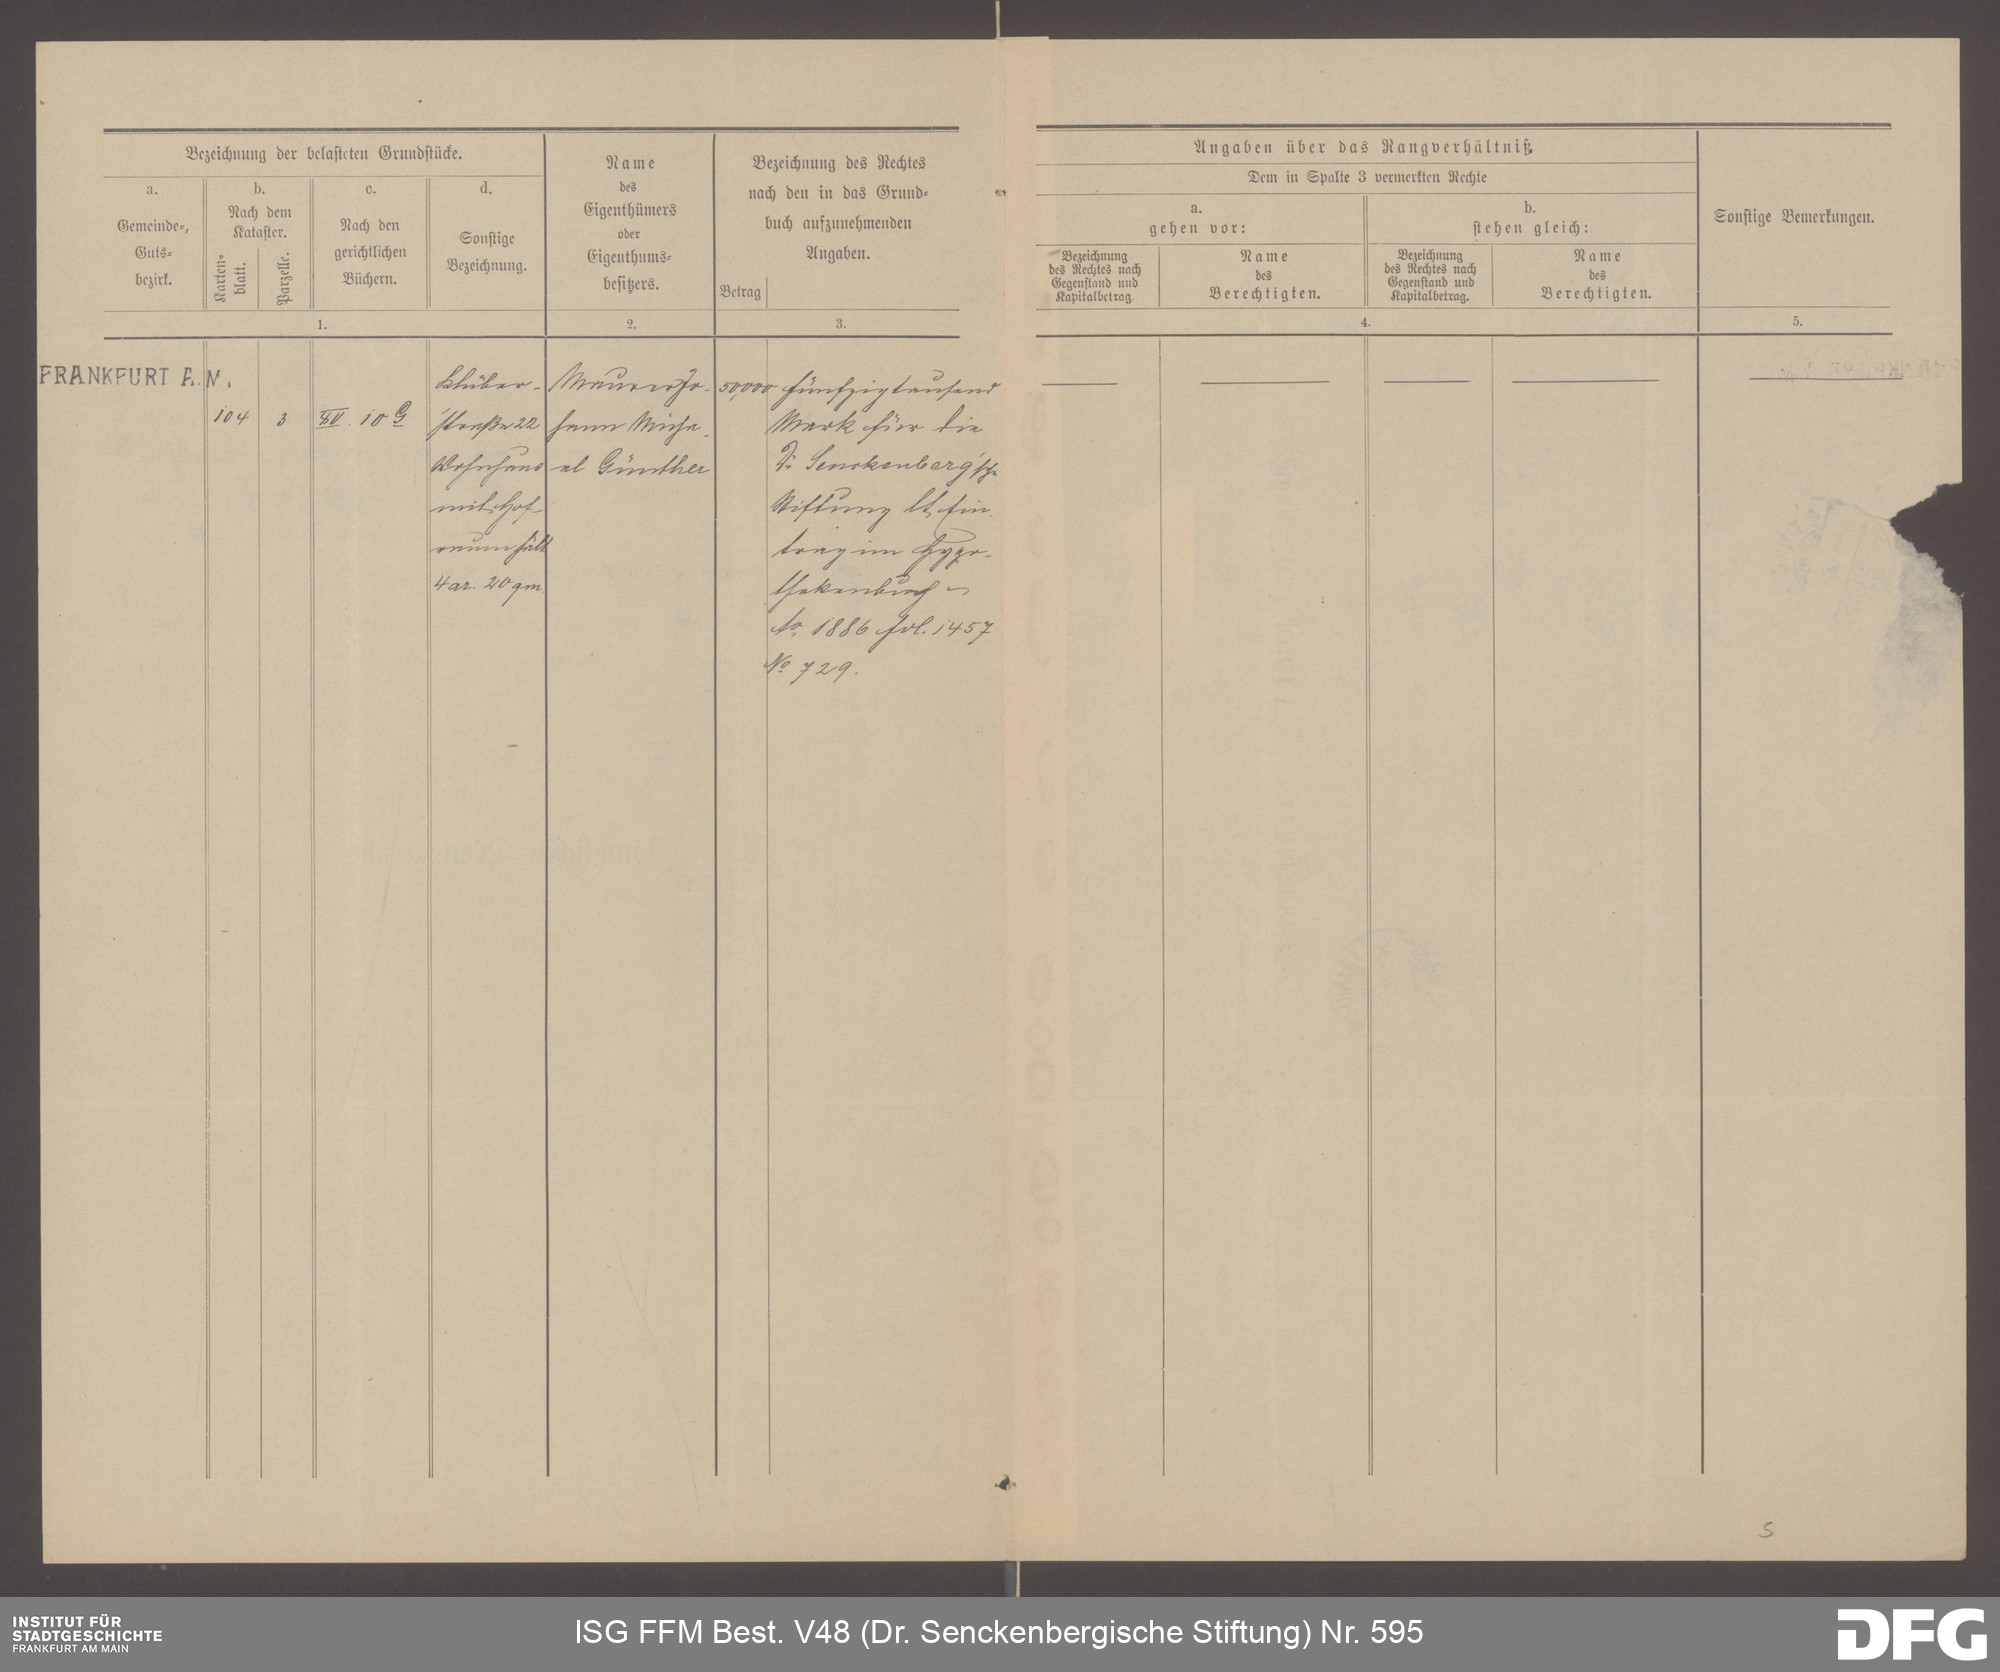 Bezeichnung der belasteten Grundstücke.
a.
Gemeinde-,
Guts-
bezirk.
b.
Nach dem
Kataster.
Karten-
blatt.
Parzelle.
c.
Nach den
gerichtlichen
Büchern.
d.
Sonstige
Bezeichnung.
1.
Name
des
Eigenthümers
oder
Eigenthums-
besitzers.
2.
Bezeichnung des Rechtes
nach den in das Grund-
buch aufzunehmenden
Angaben.
Betrag
3.
Angaben über das Rangverhältniß.
Dem in Spalte 3 vermerkten Rechte
a.
gehen vor:
Bezeichnung
des Rechtes nach
Gegenstand und
Kapitalbetrag.
Name
des
Berechtigten.
b.
stehen gleich:
Bezeichnung
des Rechtes nach
Gegenstand und
Kapitalbetrag.
Name
des
Berechtigten.
4.
Sonstige Bemerkungen.
5.
FRANKFURT A. M.
104
3
10 G
Klüber-
straße 22
Wohnhaus
mit Hof-
raum hält
4 ar. 20 qm
Maurer Jo-
hann Micha-
el Günther
50,000
fünfzigtausend
Mark für die
Dr Senckenberg'sche
Stiftung lt. Ein-
trag im Hypo-
thekenbuch
No 1886 fol. 1457
No 729.
S
INSTITUT FÜR
STADTGESCHICHTE
FRANKFURT AM MAIN
ISG FFM Best. V48 (Dr. Senckenbergische Stiftung) Nr. 595
DFG